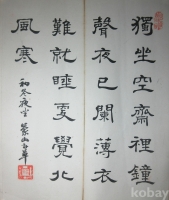 獨坐空齋裡鐘
聲夜已闌薄衣
難就睡處覺北
風寒
初冬夜坐
kobay